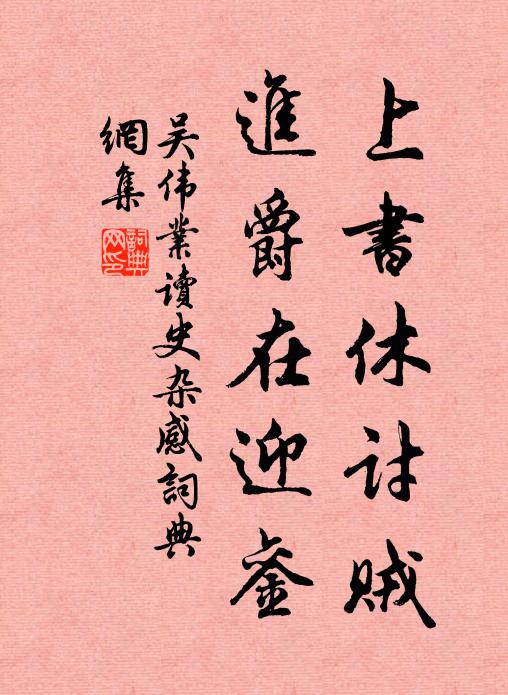 上書休討賊
進爵在迎銮
吴伟業讀史杂感詞典
網集
詞典
网印